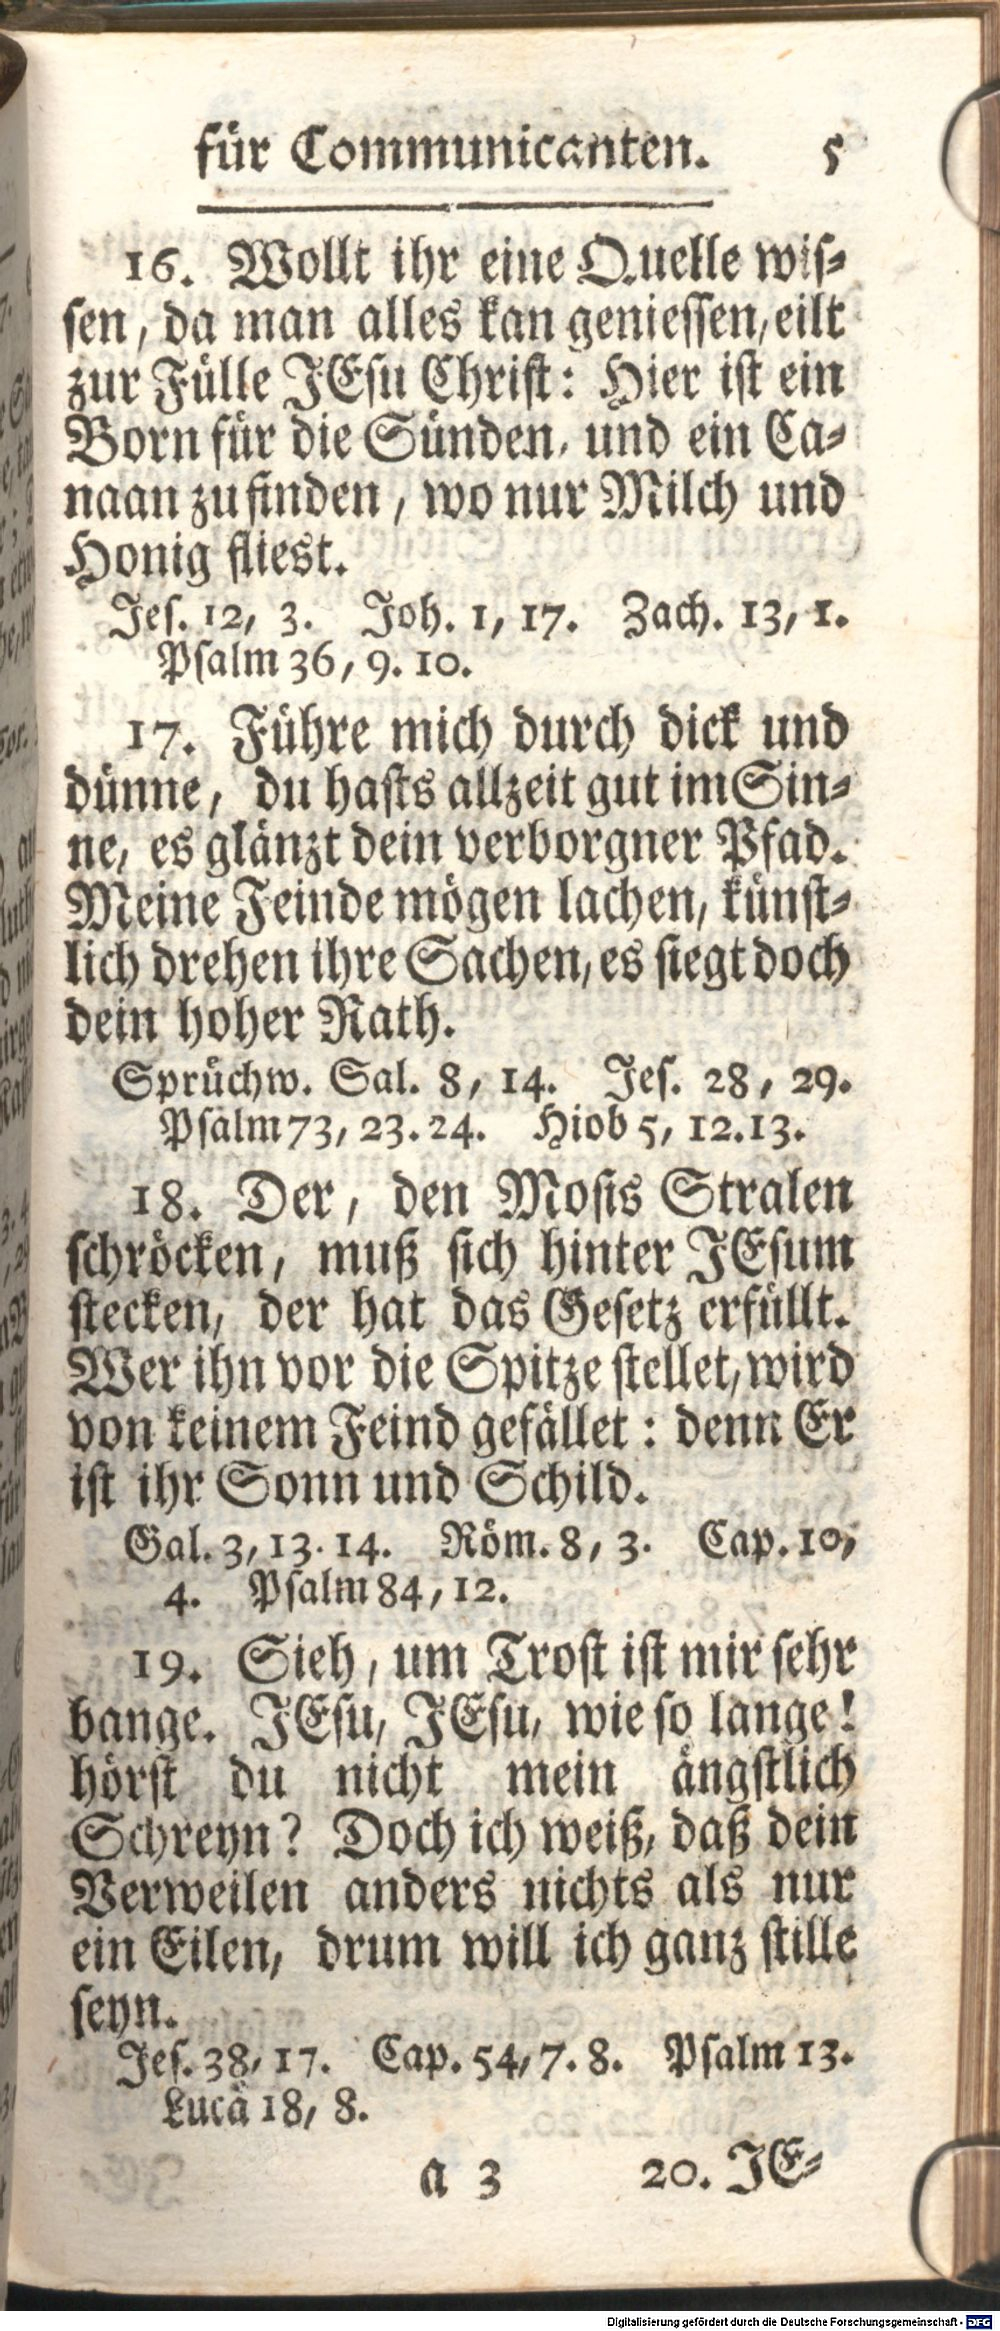 für Communicanten. 5
16. Wollt ihr eine Quelle wis-
sen, da man alles kan geniessen, eilt
zur Fülle JEsu Christ: Hier ist ein
Born für die Sünden, und ein Ca-
naan zu finden, wo nur Milch und
Honig fliest.
Jes. 12, 3. Joh. 1, 17. Zach. 13, 1.
Psalm 36, 9. 10.
17. Führe mich durch dick und
dünne, du hasts allzeit gut im Sin-
ne, es glänzt dein verborgner Pfad.
Meine Feinde mögen lachen, künst-
lich drehen ihre Sachen, es siegt doch
dein hoher Rath.
Sprüchw. Sal. 8, 14. Jes. 28, 29.
Psalm 73, 23. 24. Hiob 5, 12. 13.
18. Der, den Mosis Stralen
schröcken, muß sich hinter JEsum
stecken, der hat das Gesetz erfüllt.
Wer ihn vor die Spitze stellet, wird
von keinem Feind gefället: denn Er
ist ihr Sonn und Schild.
Gal. 3, 13. 14. Röm. 8, 3. Cap. 10,
4. Psalm 84, 12.
19. Sieh, um Trost ist mir sehr
bange. JEsu, JEsu, wie so lange!
hörst du nicht mein ängstlich
Schreyn? Doch ich weiß, daß dein
Verweilen anders nichts als nur
ein Eilen, drum will ich ganz stille
seyn.
Jes. 38, 17. Cap. 54, 7. 8. Psalm 13.
Lucä 18, 8.
a 3 20. JE-
Digitalisierung gefördert durch die Deutsche Forschungsgemeinschaft - DFG